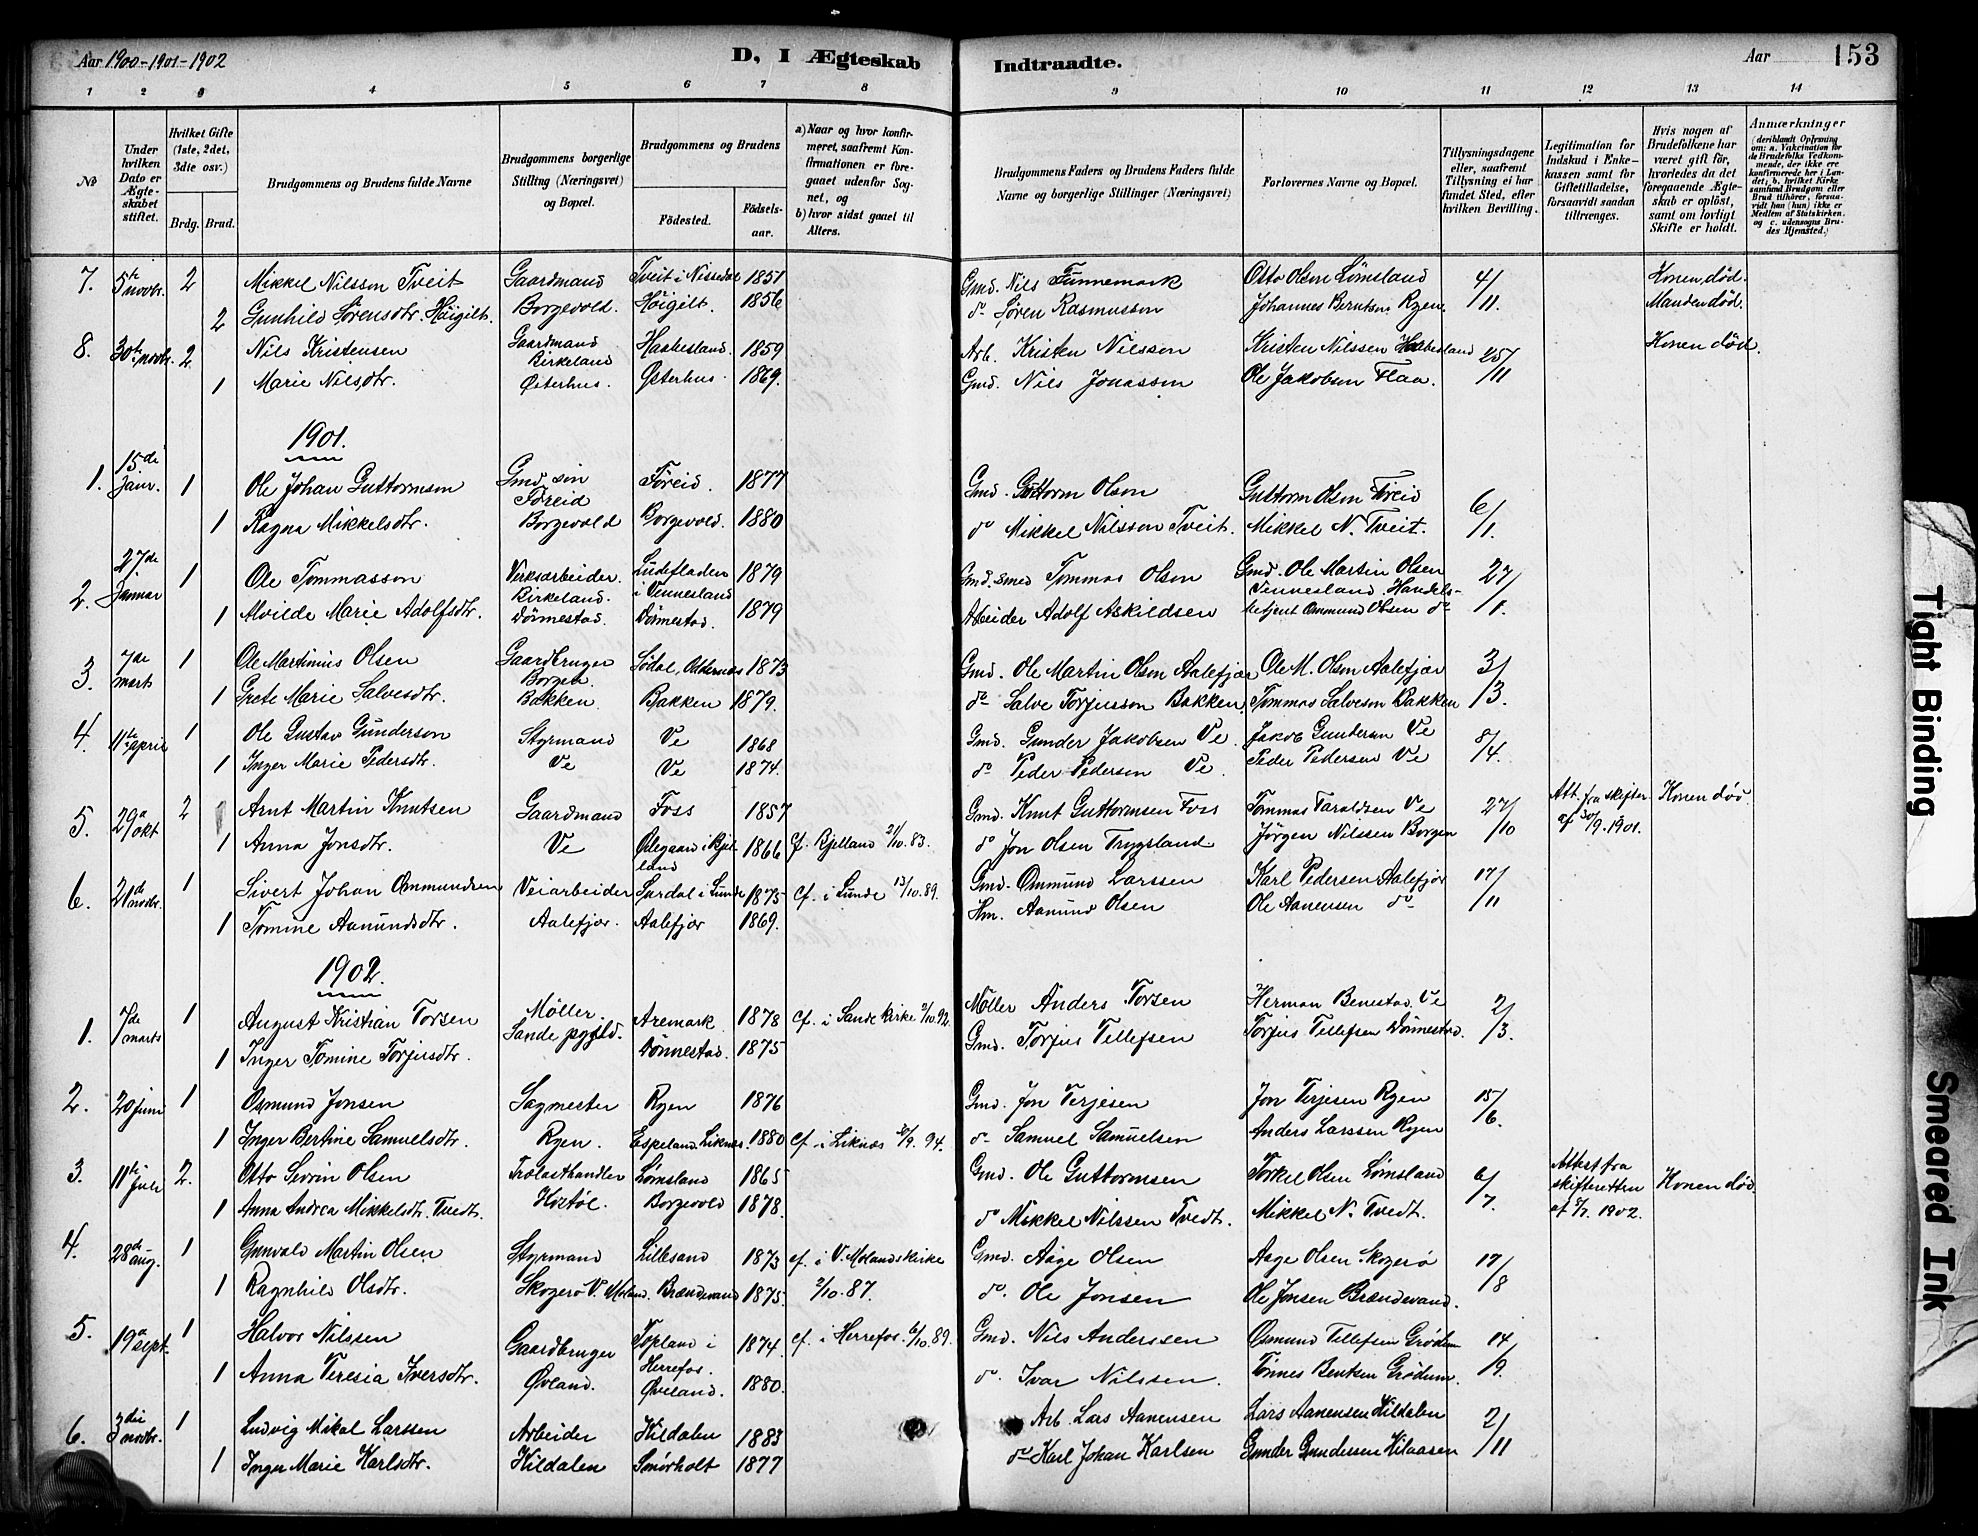 Aar 1900-1901-1902
D, I Ægteskab Indtraadte.
Aar 153
1 2 3 4 5 6 7 8 9 10 11 12 13 14
No
Under hvilken Dato er Ægteskabet stiftet.
Hvilket Gifte (1ste, 2det, 3die osv.)
Brdg. Brud.
Brudgommens og Brudens fulde Navne
Brudgommens borgerlige Stilling (Næringsvei) og Bopæl.
Brudgommens og Brudens
Fødested. Fødselsaar.
a) Naar og hvor konfirmeret, saafremt Konfirmationen er foregaaet udenfor Sognet, og
b) hvor sidst gaaet til Alters.
Brudgommens Faders og Brudens Faders fulde Navne og borgerlige Stillinger (Næringsvei)
Forlovernes Navne og Bopæl.
Tillysningsdagene eller, saafremt Tillysning ei har fundet Sted, efter hvilken Bevilling.
Legitimation for Indskud i Enkekassen samt for Giftetilladelse, forsaavidt saadan tiltrænges.
Hvis nogen af Brudefolkene har været gift før, hvorledes da det foregaaende Ægteskab er opløst, samt om lovligt Skifte er holdt.
Anmærkninger (deriblandt Oplysning om: a. Vakcination for de Brudefolks Vedkommende, der ikke ere konfirmerede her i Landet, b. hvilket Kirkesamfund Brudgom eller Brud tilhører, forsaavidt han (hun) ikke er Medlem af Statskirken, og c. udensogns Brudes Hjemsted.)
7. 5te novbr. 2 Mikkel Nilsson Tveit Gaardmand Tveit i Nissedal 1851 Gmd. Nils Finnemark Otto Olsen Lømsland 4/11 Konen død.
2 Gunhild Sørensdtr. Höigilt. Borgevold. Höigilt. 1856 do Søren Rasmusson Johannes Berntsen Ryen. Manden død.
8. 30te novbr. 2 Nils Kristensen Gaardmand Birkeland Haabesland. 1859 Arb. Kristen Nilsson Kristen Nilssen Haabesland 25/11 Konen død.
1 Marie Nilsdtr. Østerhus. Østerhus. 1869. Gmd. Nils Jonasson Ole Jakobsen Flaa.
1901.
1. 15de Janr. 1 Ole Johan Guttormson Gmd. søn Føreid Føreid. 1877 Gmd. Guttorm Olson Guttorm Olson Føreid 6/1.
1 Ragna Mikkelsdtr. Borgevold Borgevold. 1880 do Mikkel Nilsson Tveit. Mikkel N. Tveit.
2. 27de Januar 1 Ole Tommasson Verksarbeider. Birkeland. Ludefladen i Vennesland 1879 Gmd. smed Tommas Olson Gmd. Ole Martin Olsen Vennesland. Handels- 27/1.
1 Alvilde Marie Adolfsdtr. Dönnestad. Dönnestad. 1879 Arbeider Adolf Askildsen betjent Ommund Olsen do
3. 7de marts 1 Ole Martinius Olsen Gaardbruger Borgen. Sødal, Oddernes 1873 Gmd. Ole Martin Olson Aalefjær Ole M. Olson Aalefjær 3/3.
1 Grete Marie Salvesdtr. Bakken. Bakken 1879. do Salve Torjusson Bakken. Tommas Salveson Bakken
4. 11te april 1 Ole Gustav Gunderson Styrmand Ve 1868 Gmd. Gunder Jakobsen Ve. Jakob Gundersen Ve 8/4.
1 Inger Marie Pedersdtr. Ve Ve 1874. do Peder Pedersen Ve. Peder Pedersen Ve
5. 29de okt 2 Arnt Martin Knutsen Gaardmand Foss 1857 Gmd. Knut Guttormsen Foss Tommas Taraldsen Ve 27/10 Att. fra skifter. af 30/9. 1901. Konen død.
1 Anna Jonsdtr. Ve Ødegaard i Bjelland 1866 cf. Bjelland 21/10. 83. do Jon Olsen Trygsland. Jørgen Nilssen Borgen
6. 21de novbr. 1 Sivert Johan Ommundsen Veiarbeider 1875 cf. i Lunde 13/10. 89. Gmd. Ommund Larssen Karl Pedersen Aalefjær 17/11
1 Tomine Aanundsdtr. Aalefjær. Aalefjær 1869. Hm. Aanund Olsen Ole Aanensen do
1902.
1. 7de marts 1 August Kristian Torsen Möller. Aremark 1878 cf. i Sande kirke 2/10. 92. Möller Anders Torsen Herman Benestad. Ve 2/3.
1 Inger Tomine Torjusdtr. Dönnestad. 1875 Gmd. Torjus Tellefsen Torjus Tellefsen Dönnestad.
2. 20 juni 1 Osmund Jonsen Sagmester Ryen 1876 Gmd. Jon Terjesen Jon Terjesen Ryen 15/6.
1 Inger Bertine Samuelsdtr. Ryen. Espeland Liknes. 1880 cf. i Liknes 30/9. 94. do Samuel Samuelsen Anders Larssen Ryen
3. 11te juli 2. Otto Severin Olsen Trælasthandler Lømsland 1865 Gmd. Ole Guttormsen Torkel Olsen Lømsland 6/7. Attest fra skifteretten af 5/7. 1902. Konen død.
1 Anna Andrea Mikkelsdtr. Tvedt. Borgevold 1878. do Mikkel Nilssen Tvedt. Mikkel N. Tvedt.
4. 28de aug. 1 Gunvald Martin Olsen Styrmand Lillesand 1873 cf. i V. Molands kirke Gmd. Aage Olsen Aage Olsen Skogerø 17/8
1 Ragnhild Olsdtr. Skogerø V. Moland. Brændevand 1875. 2/10. 87. do. Ole Jonsen Ole Jonsen Brændevand.
5. 19de sept. 1 Halvor Nilssen Gaardbruger Topland i Herrefos. 1874. cf. i Herrefos. 6/10. 89. Gmd. Nils Anderssen Osmund Tellefsen Grødum 14/9.
1 Anna Teresia Iversdtr. Øvland. Øveland. 1880. do. Ivar Nilssen. Tönnes Bentsen Grødum.
6. 3die novbr. 1 Ludvig Mikal Larssen Arbeider Kildalen 1883 Arb. Lars Aanensen Lars Aanensen Kildalen 2/11
1 Inger Marie Karlsdtr. Kildalen Smørholt 1877 do Karl Johan Karlsen Gunder Gundersen Kilaasen
Tight Binding
Smeared Ink